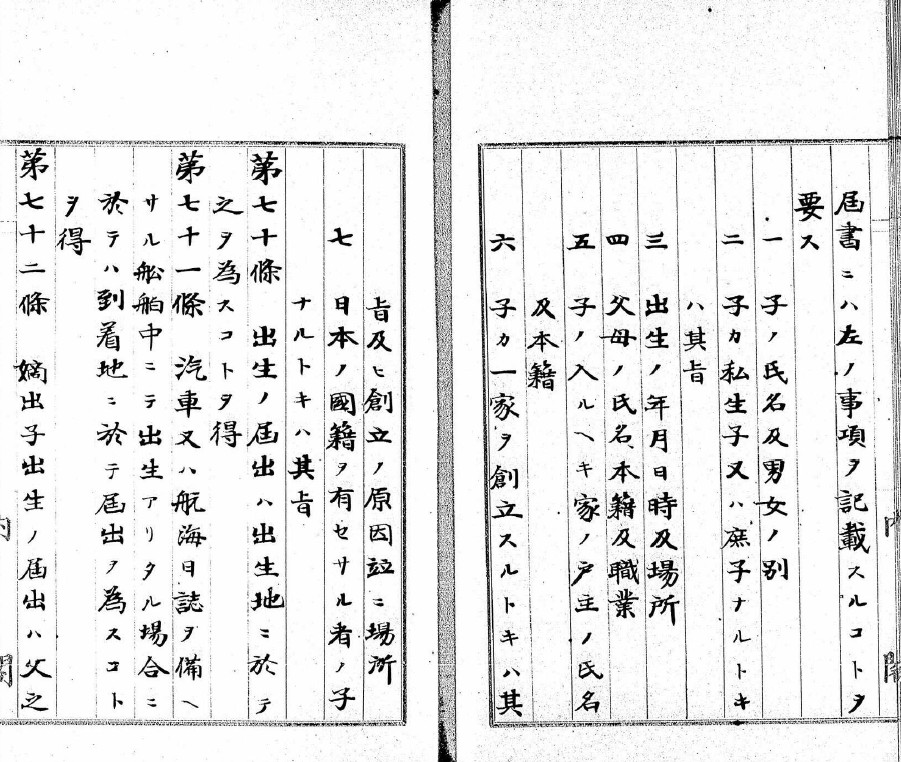 屆書ニハ左ノ事項ヲ記載スルコトヲ
要ス
一 子ノ氏名及男女ノ別
二 子カ私生子又ハ庶子ナルトキ
ハ其旨
三 出生ノ年月日時及場所
四 父母ノ氏名本籍及職業
五 子ノ入ルヘキ家ノ戸主ノ氏名
及本籍
六 子カ一家ヲ創立スルトキハ其
旨及ヒ創立ノ原因竝ニ場所
七 日本ノ國籍ヲ有セサル者ノ子
ナルトキハ其旨
第七十條 出生ノ屆出ハ出生地ニ於テ
之ヲ為スコトヲ得
第七十一條 汽車又ハ航海日誌ヲ備ヘ
サル船舶中ニテ出生アリタル場合ニ
於テハ到着地ニ於テ屆出ヲ為スコト
ヲ得
第七十二條 嫡出子出生ノ屆出ハ父之
内
閣
内
閣